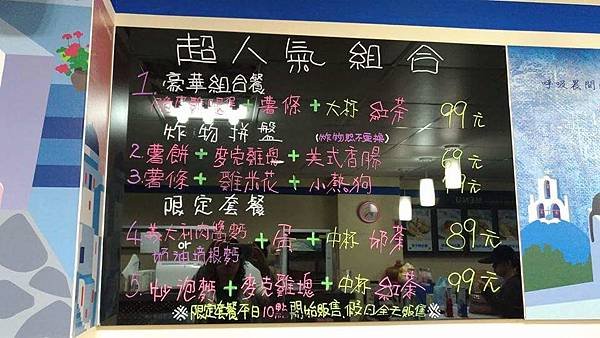 超人氣組合
1. 豪華組合餐
+ 薯條 + 大杯 紅茶 99元
炸物拼盤 (炸物恕不更換)
2 薯餅 + 麥克雞塊 + 美式香腸 69元
3 薯條 + 雞米花 + 小熱狗 元
限定套餐
4. 義大利肉醬麵 + 蛋 + 中杯 奶茶 89元
or
奶油培根麵
5. 炒泡麵 + 麥克雞塊 + 中杯 紅茶 99元
※限定套餐平日10點開始販售,假日全天販售※
呼吸晨間